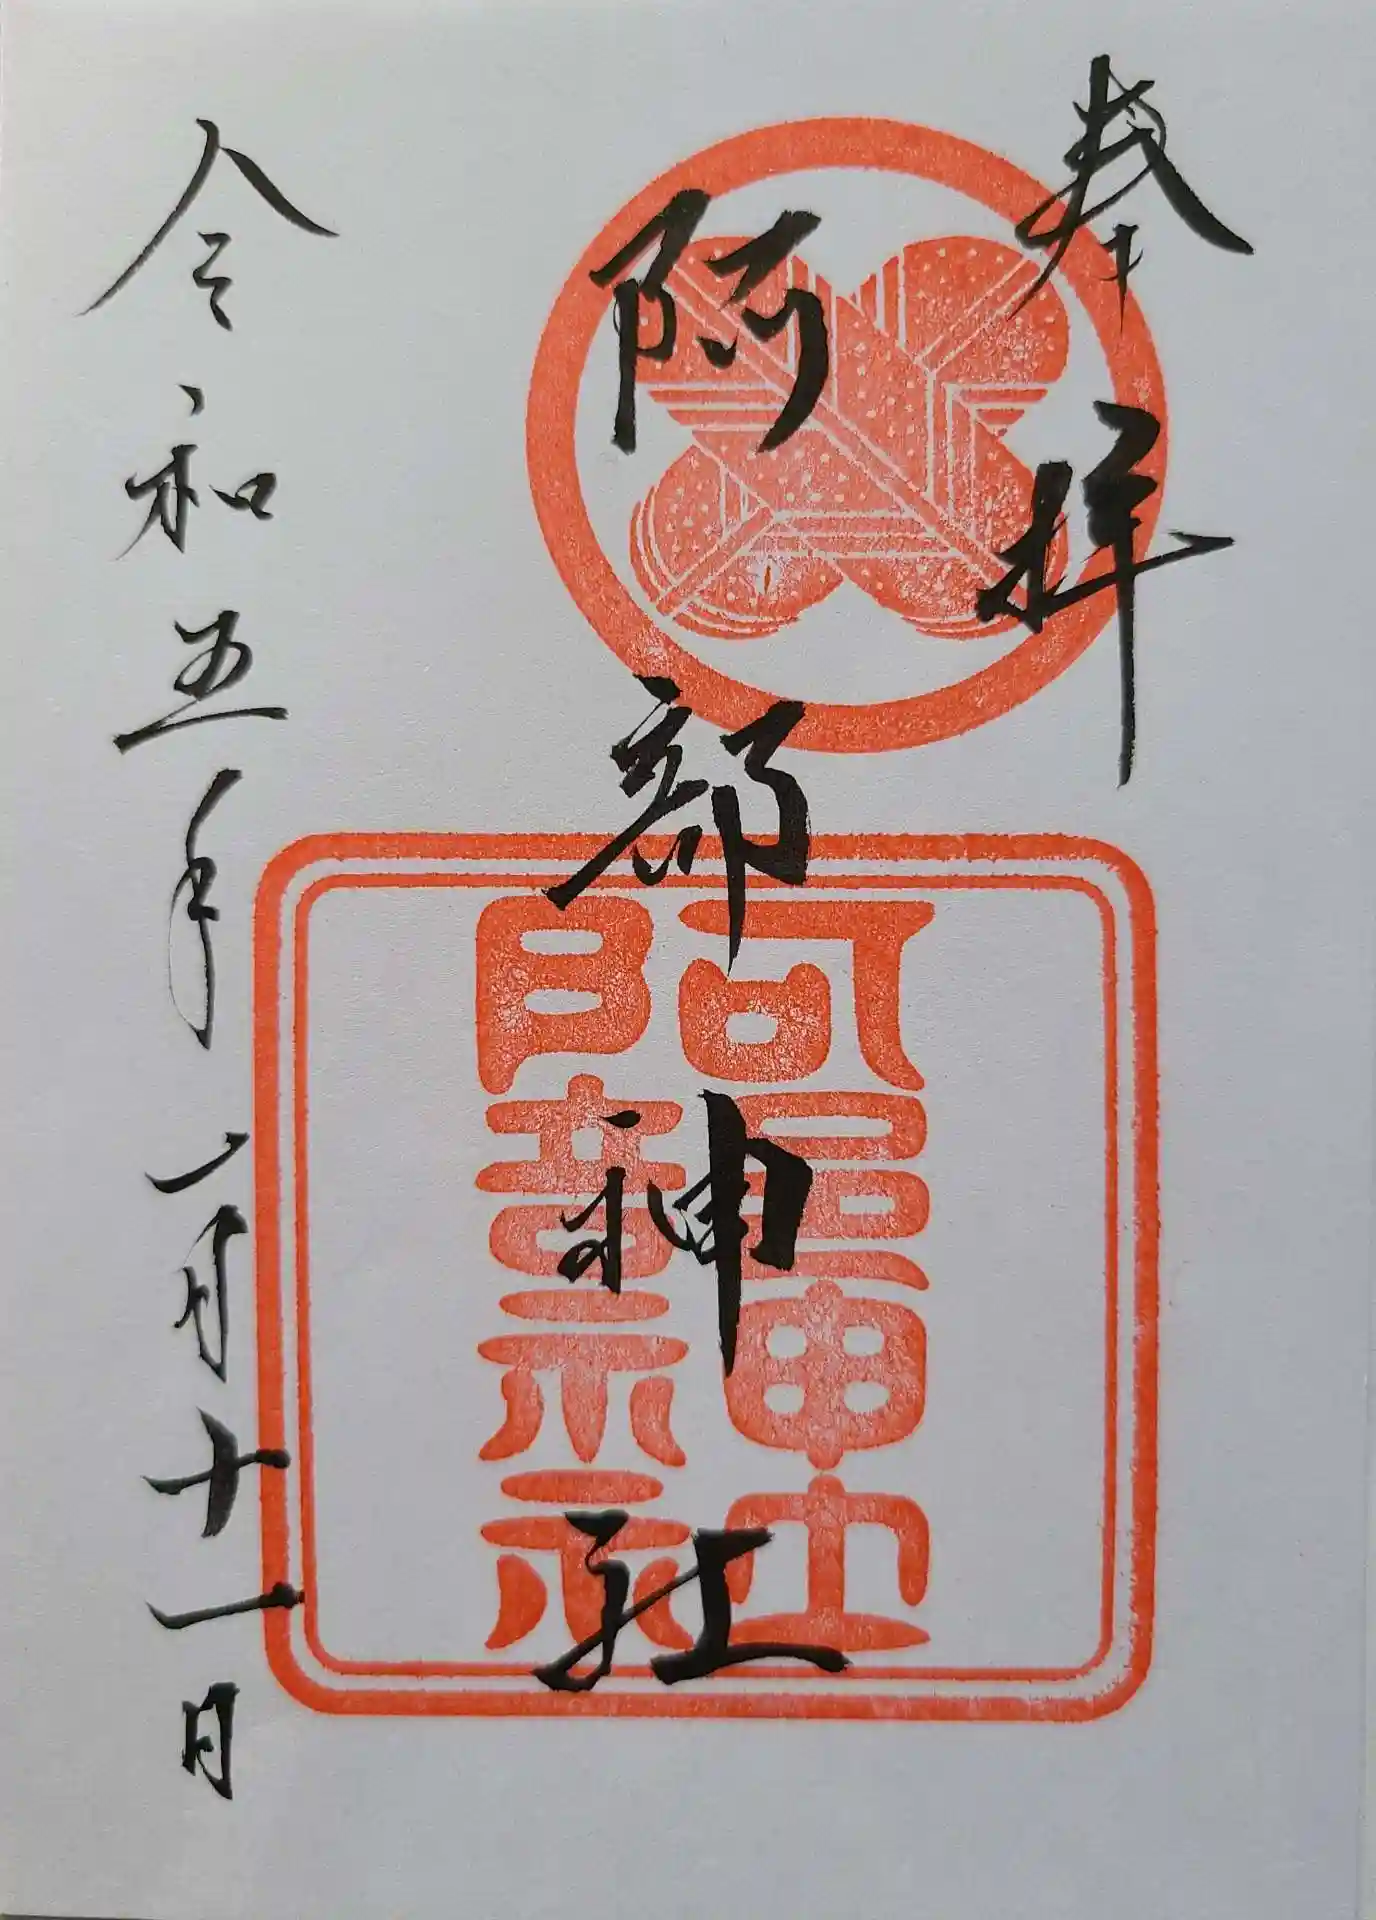 奉拝
阿部神社
阿部神社
令和五年二月十一日